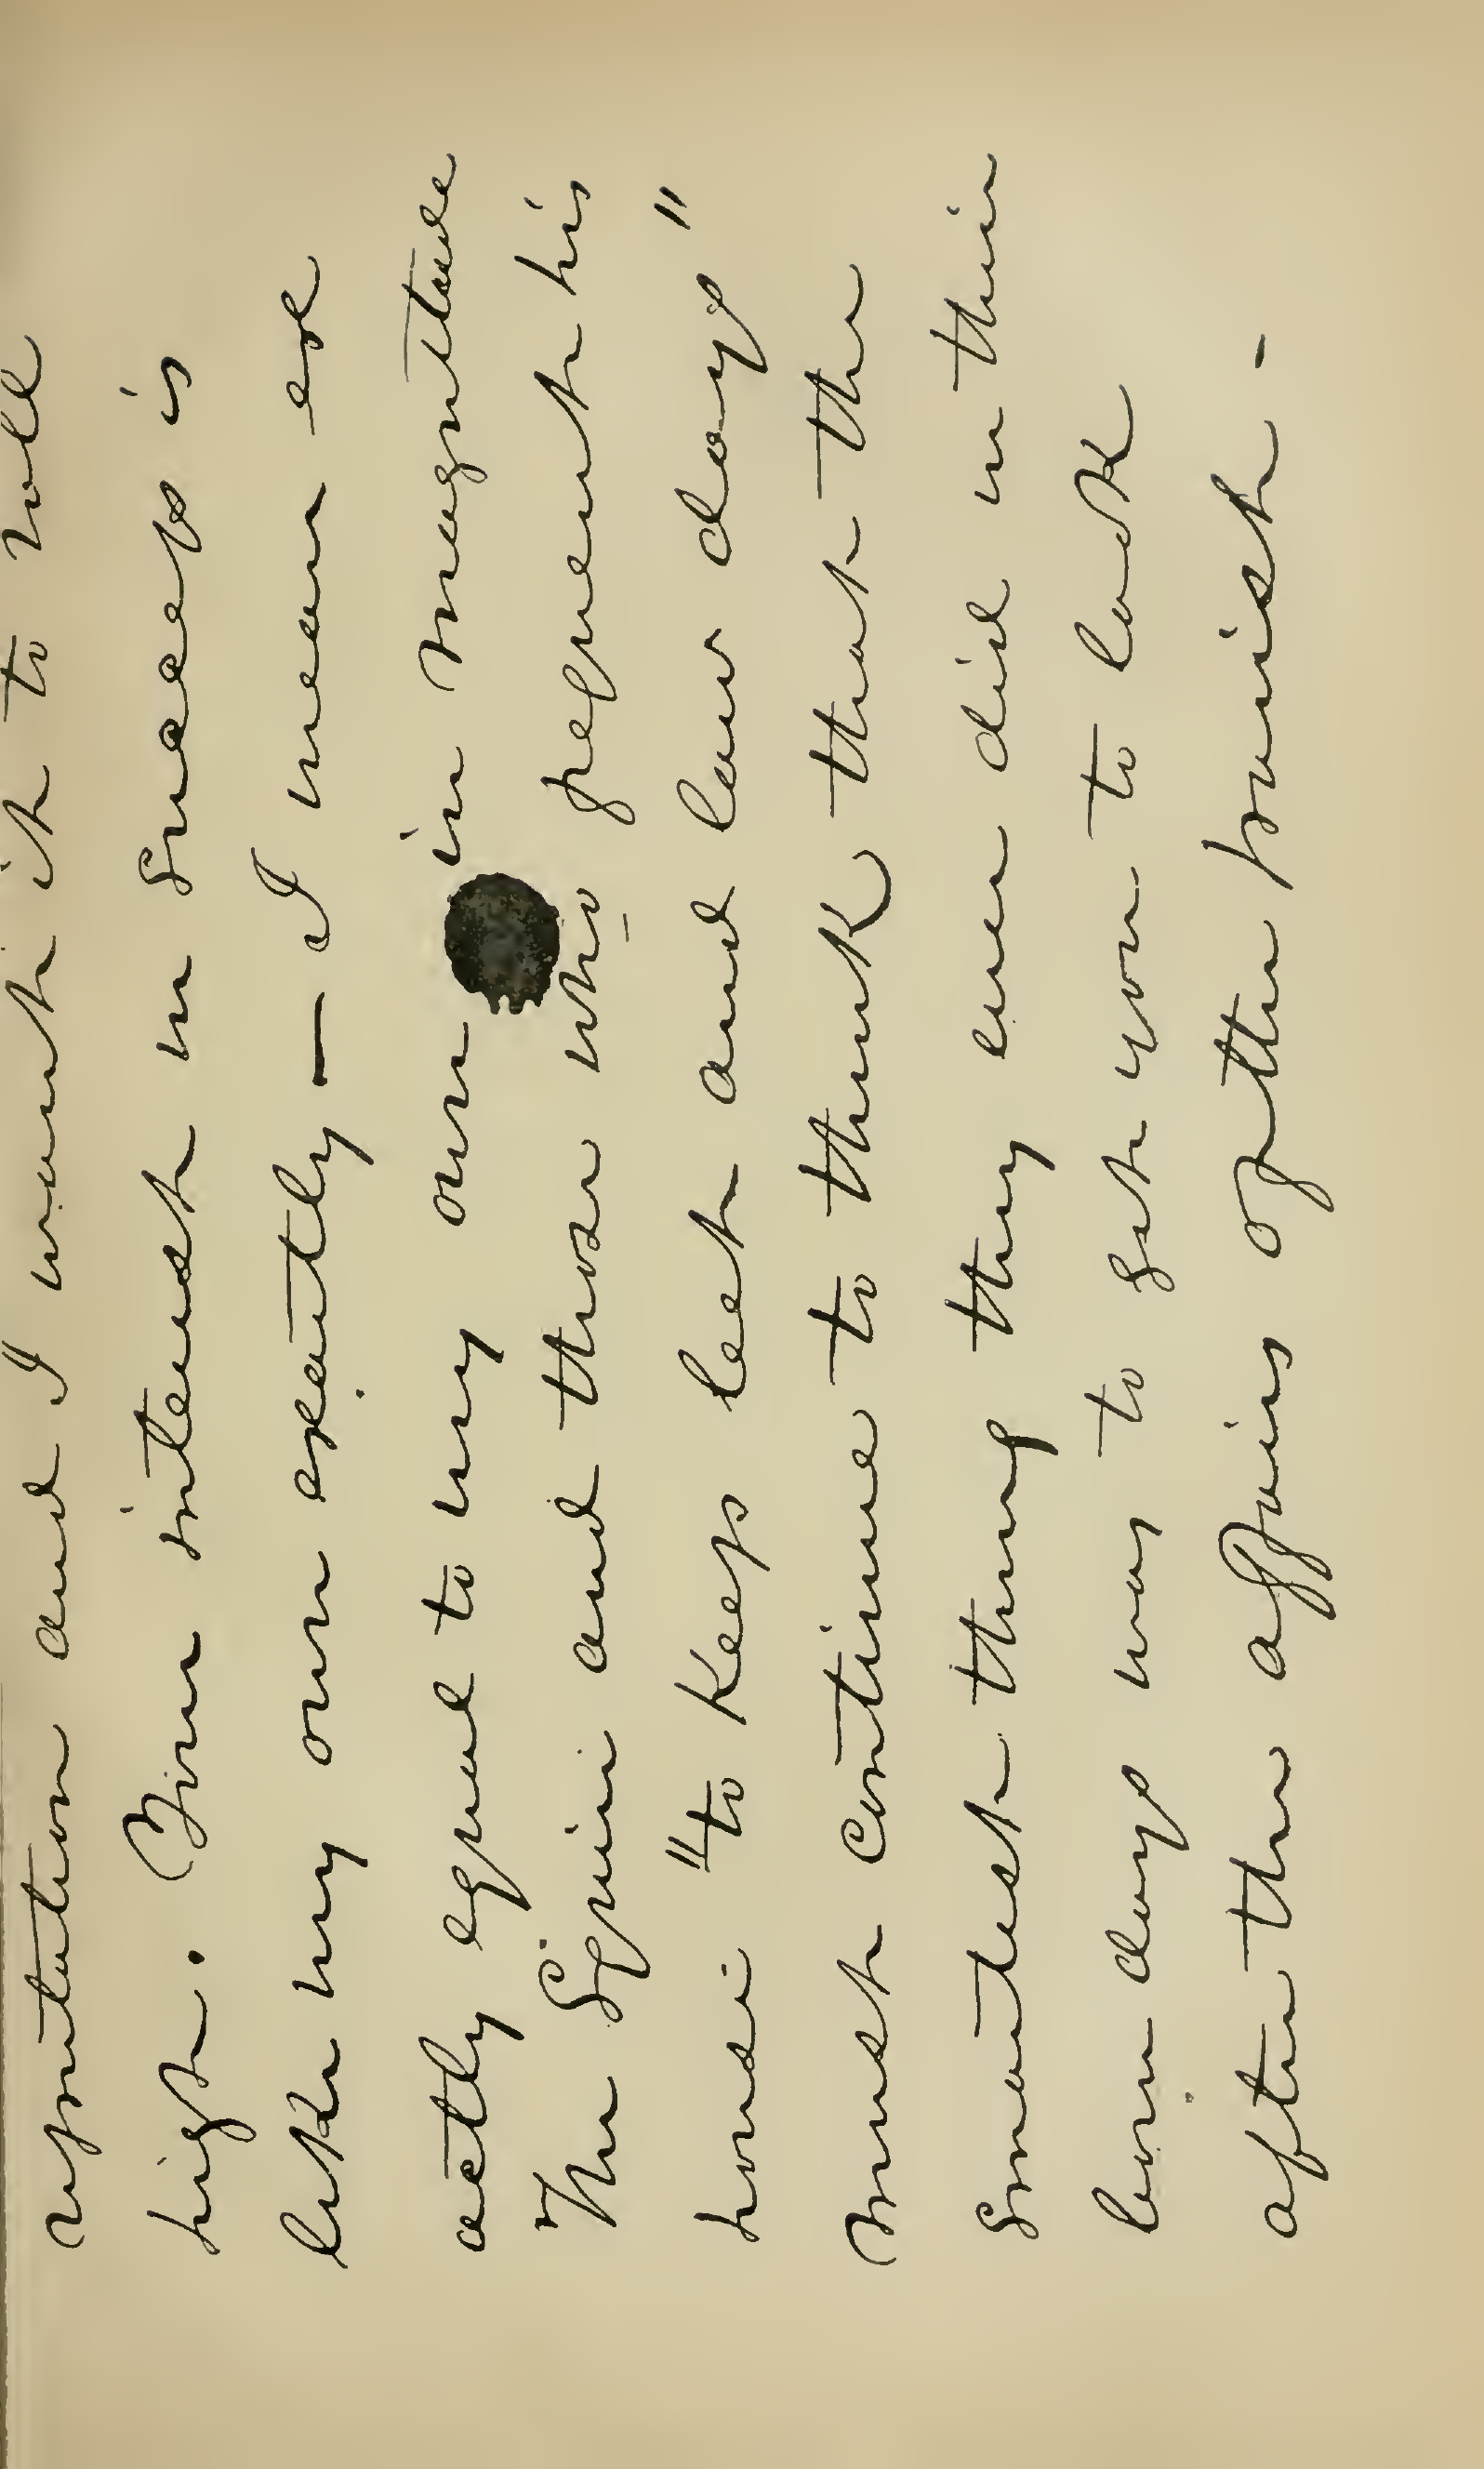 reputation and I want it to hold
high. Your interest in Sneeps is
like my own exactly — I mean ex
actly equal to my own in magnitude
The Squire and those who frequent his
house "to keep leet and law days"
must continue to think that the
smartest thing they ever did in their
born days was to get you to look
after the affairs of the parish -